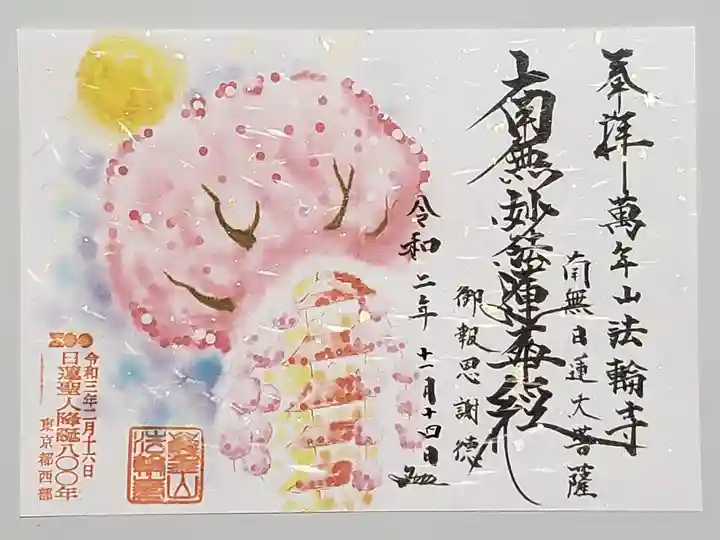 奉拝 萬年山法輪寺
南無日蓮大菩薩
南無妙法蓮華経
御報恩謝徳
令和二年 十一月十四日
令和三年二月十六日
日蓮聖人降誕八〇〇年
東京都西部